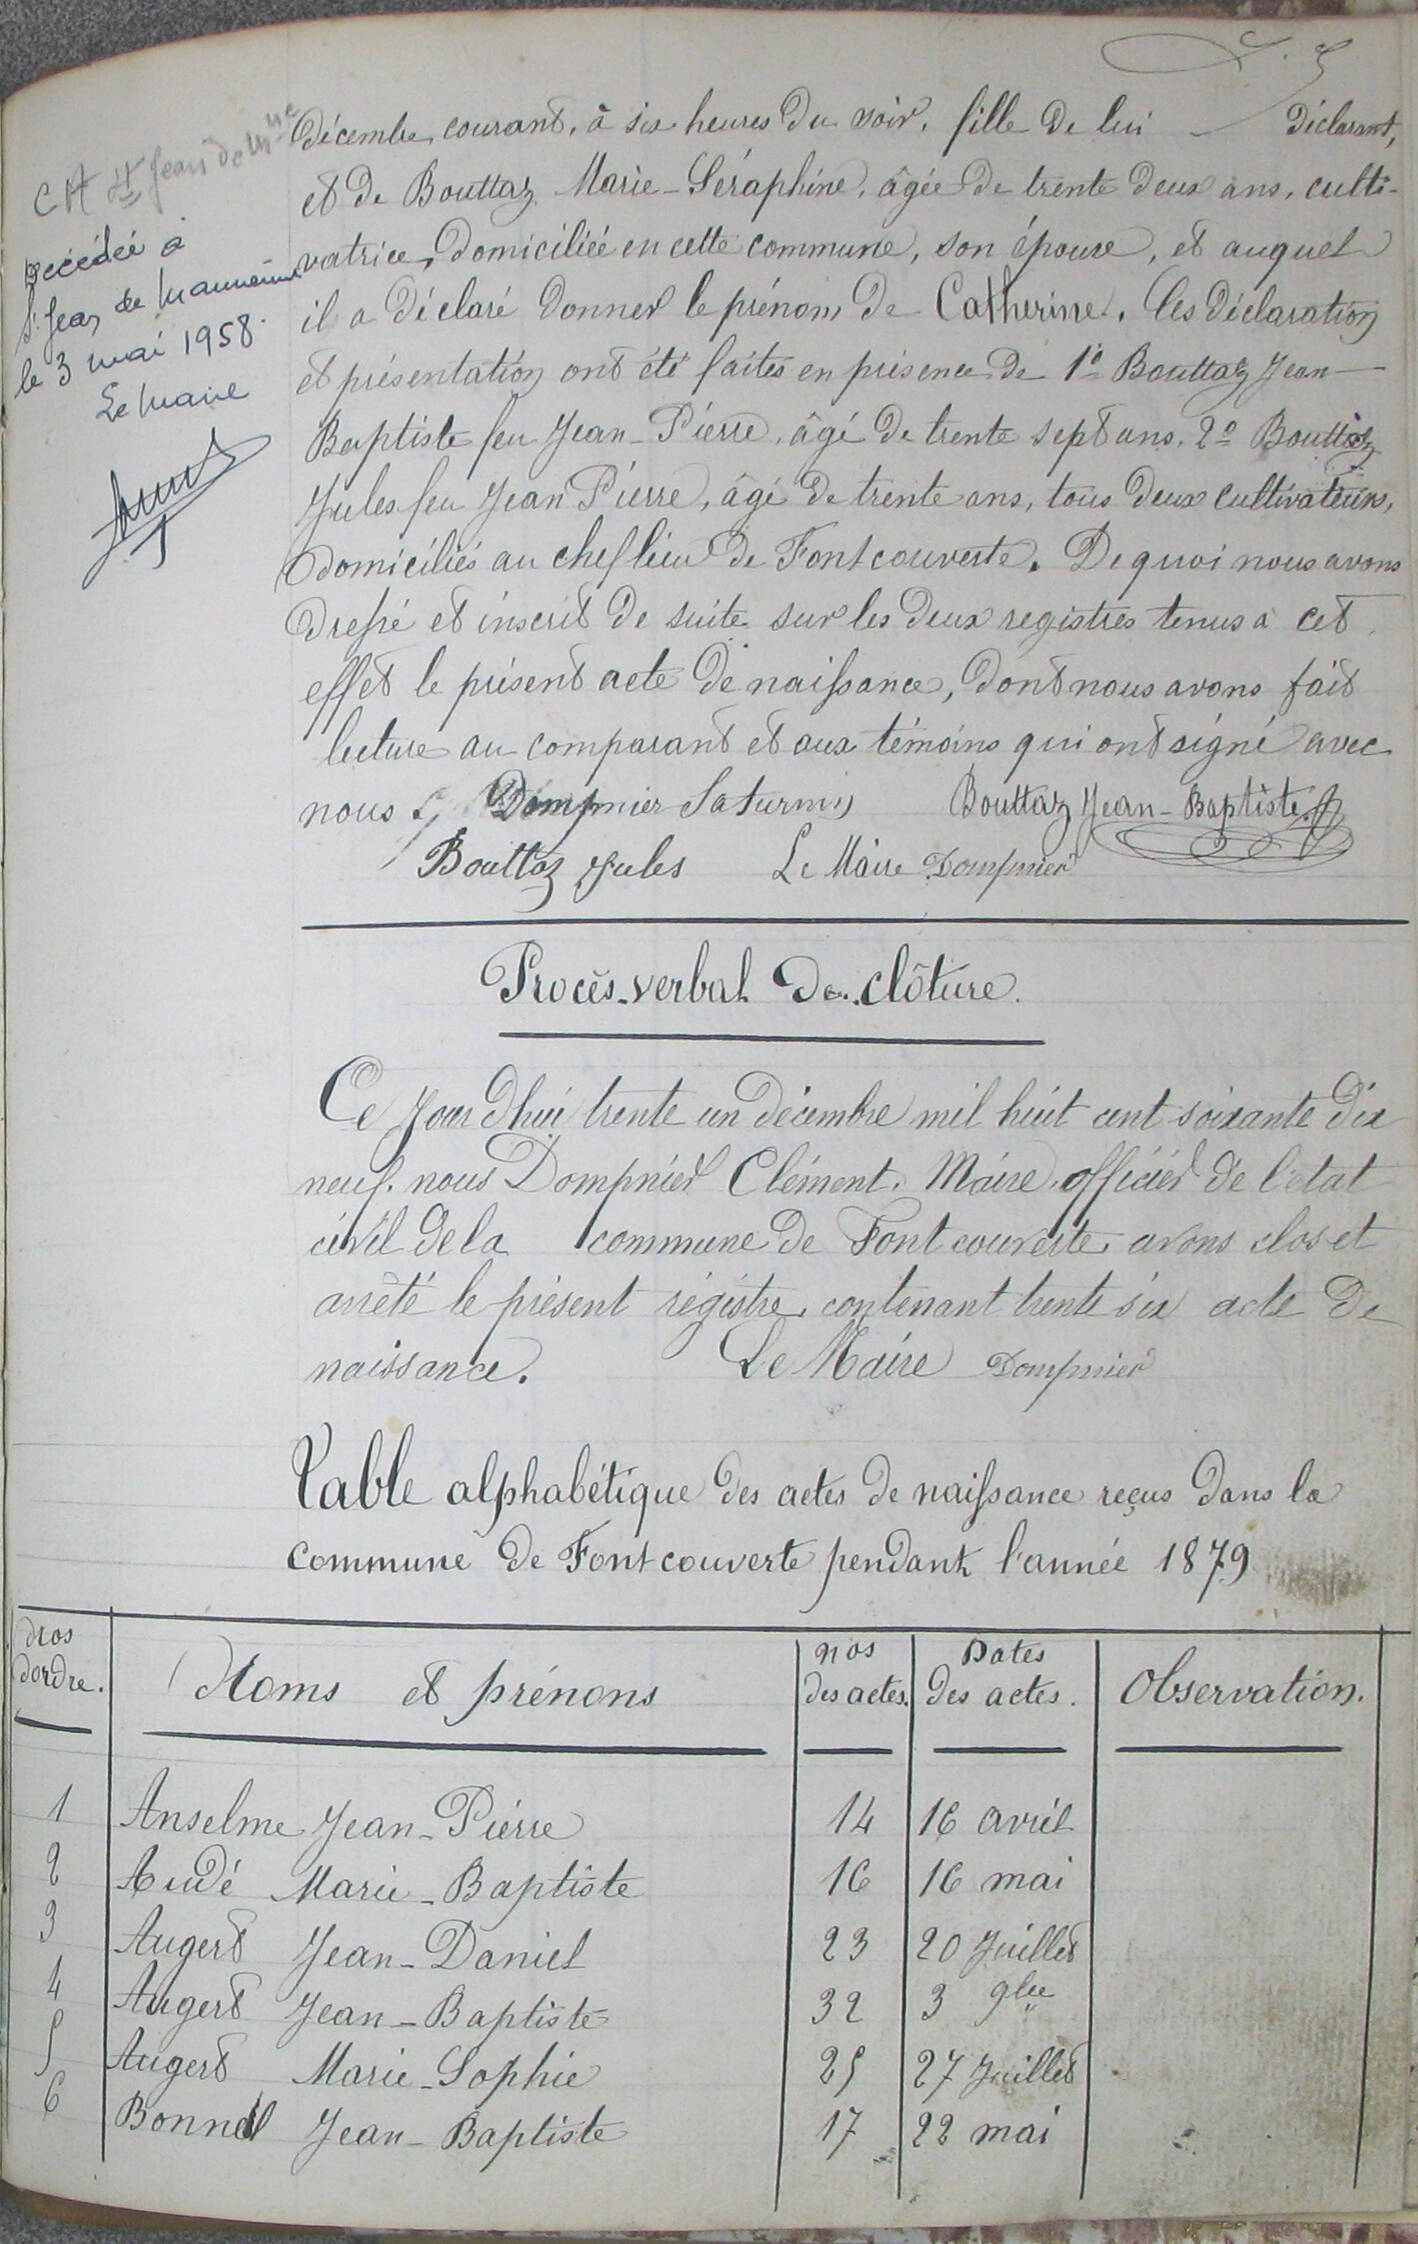 CA St Jean de Mne
Décédée à
St Jean de Maurienne
le 3 mai 1958.
Le Maire
décembre courant, à six heures du soir, fille de lui déclarant,
et de Bouttaz Marie-Séraphine, âgée de trente deux ans, culti-
vatrice, domiciliée en cette commune, son épouse, et auquel
il a déclaré donner le prénom de Catherine. Ces déclaration
et présentation ont été faites en présence de 1° Bouttaz Jean
Baptiste feu Jean-Pierre, âgé de trente sept ans. 2° Bouttaz
Jules feu Jean Pierre, âgé de trente ans, tous deux cultivateurs,
domiciliés au chef lieu de Fontcouverte. De quoi nous avons
dressé et inscrit de suite sur les deux registres tenus à cet
effet le présent acte de naissance, dont nous avons fait
lecture au comparant et aux témoins qui ont signé avec
nous. Dompnier Saturnin Bouttaz Jean-Baptiste
Bouttaz Jules Le Maire Dompnier
Procès-verbal de clôture.
Ce jour d'hui trente un décembre mil huit cent soixante dix
neuf. nous Dompnier Clément, Maire officier de l'état
civil de la commune de Fontcouverte avons clos et
arrêté le présent régistre contenant trente six acte de
naissance. Le Maire Dompnier
Table alphabétique des actes de naissance reçus dans la
commune de Fontcouverte pendant l'année 1879
Nos d'ordre. Noms et prénons nos des actes. Dates des actes. Observation.
1 Anselme Jean-Pierre 14 16 avril
2 Audé Marie-Baptiste 16 16 mai
3 Augert Jean-Daniel 23 20 Juillet
4 Augert Jean-Baptiste 32 3 9bre
5 Augert Marie-Sophie 25 27 Juillet
6 Bonnel Jean-Baptiste 17 22 mai